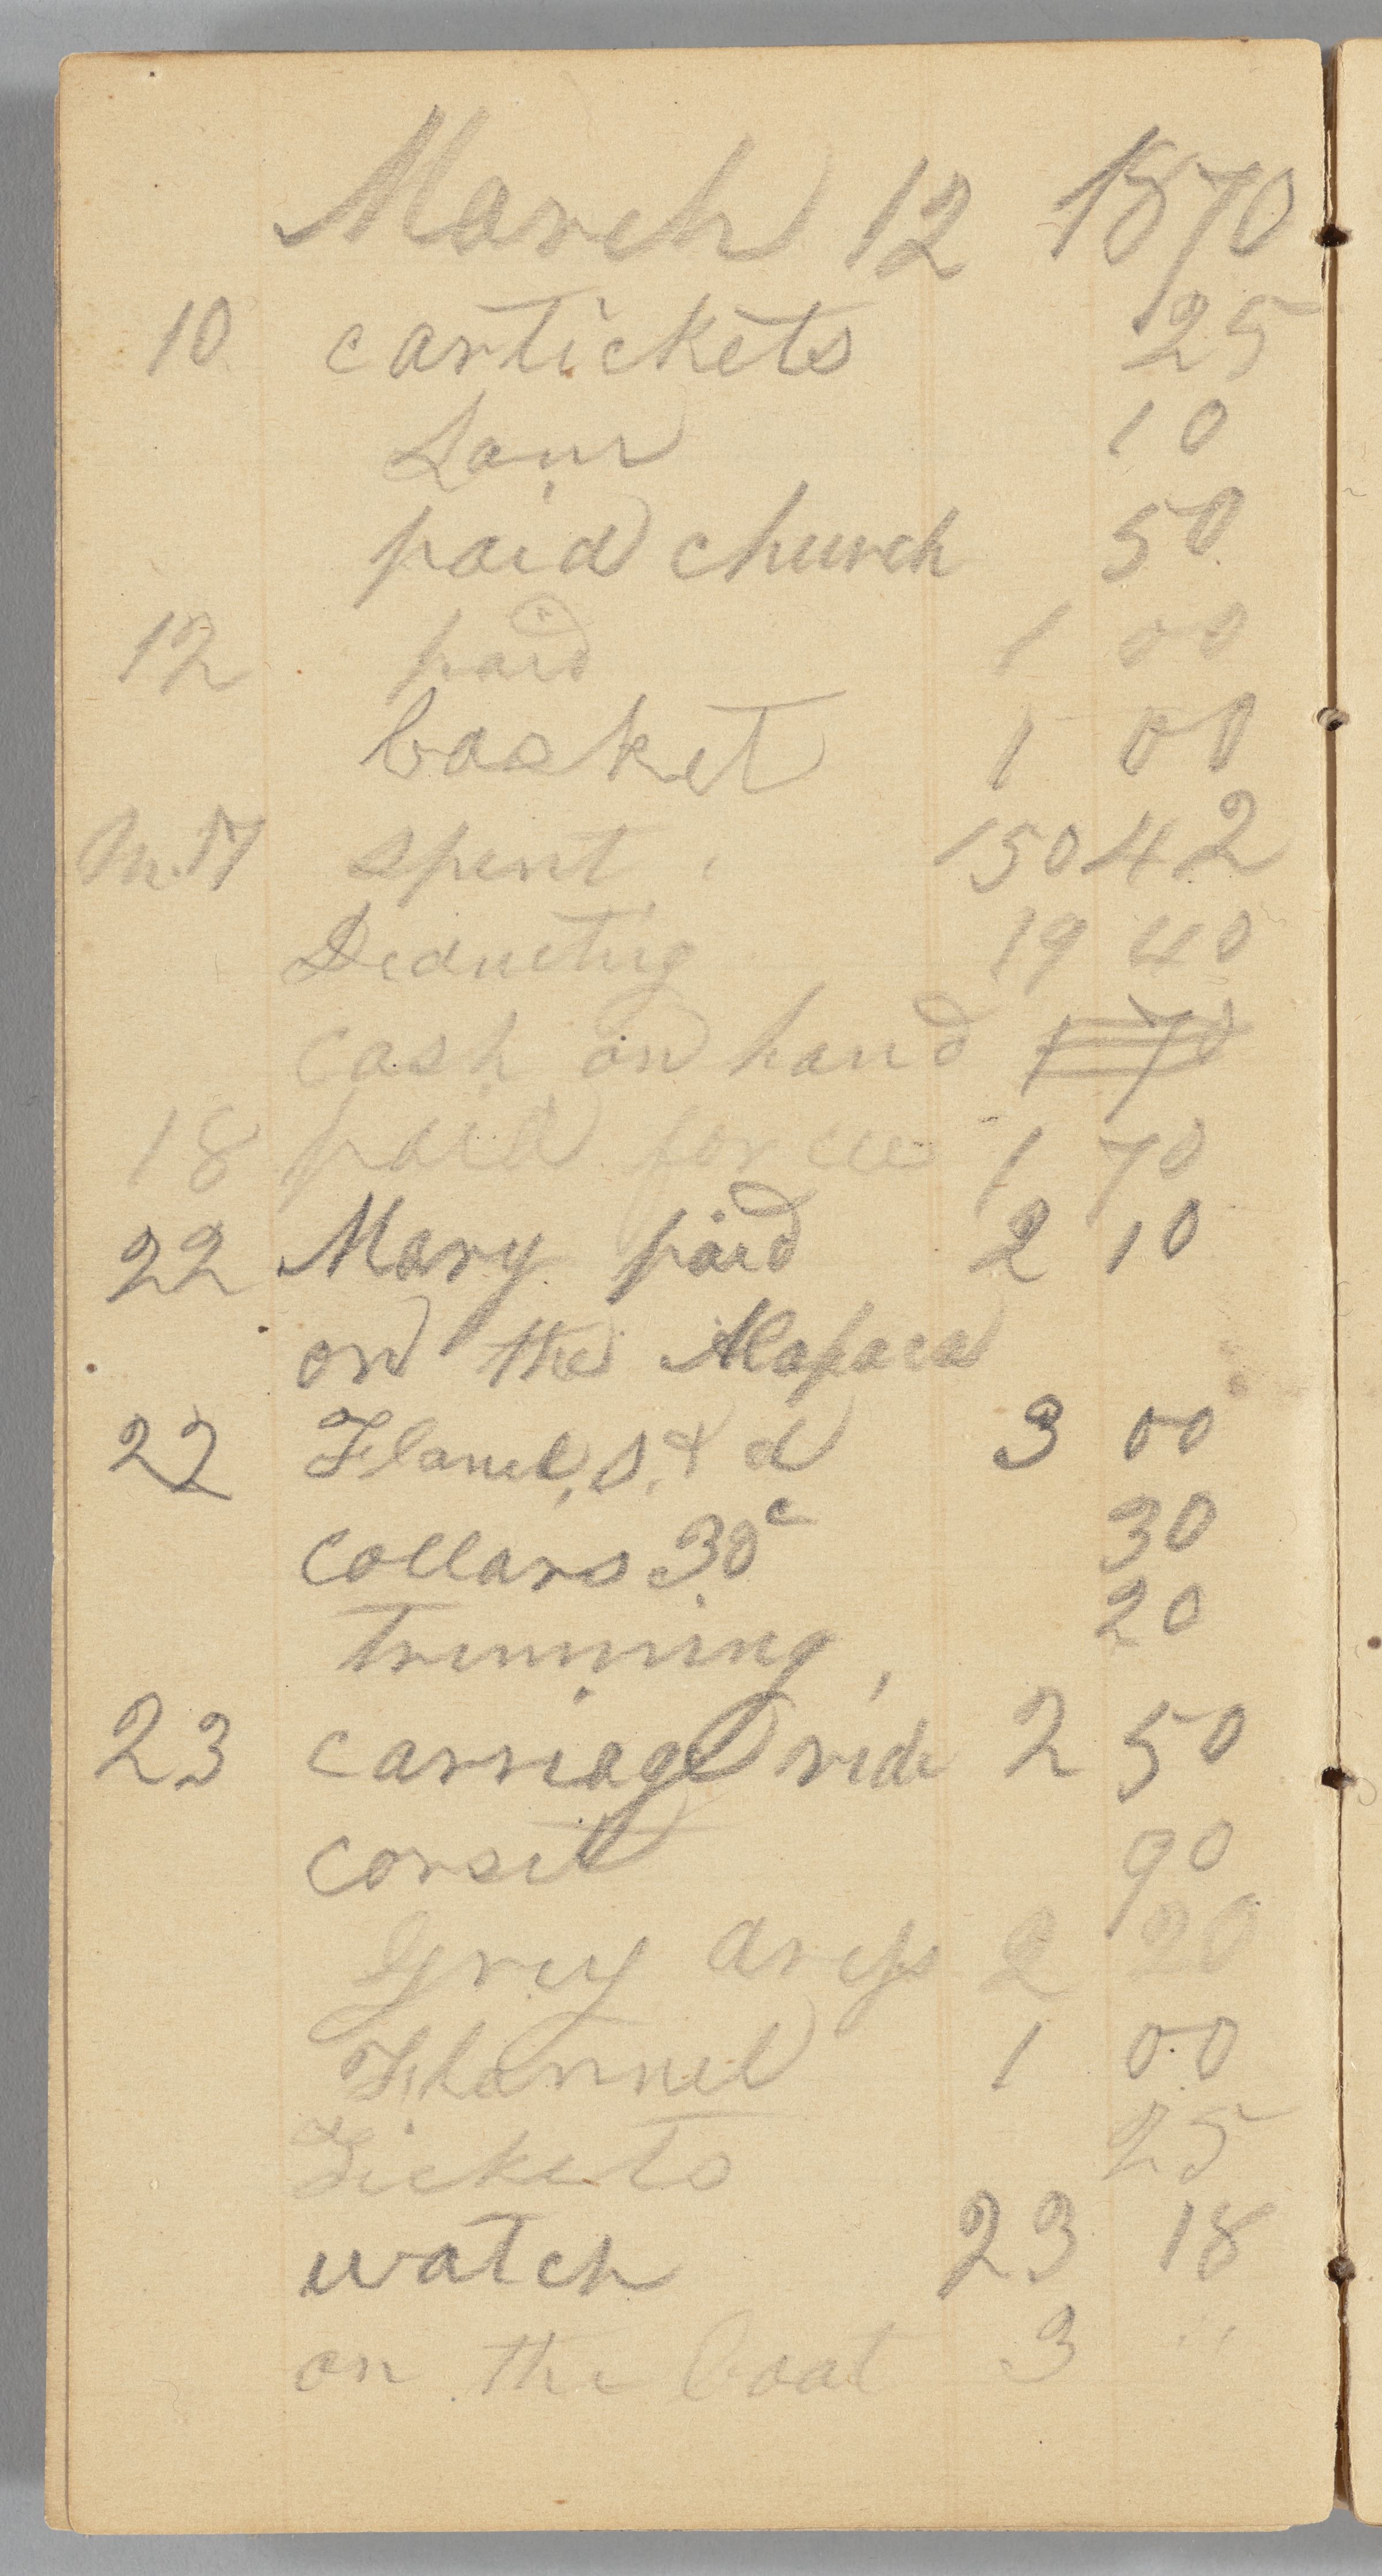 March 12 1870
10 cartickets 25
10
paid church 50
12 paid 1 00
basket 1 00
M. 17 spent 150 42
Deducting 19 40
cash on hand 1 70
18 paid for 1 70
22 Mary paid 2 10
on the Alapaca
22 Flanel, S. & d 3 00
Collars 30c 30
Trimming, 20
23 carriage ride 2 50
corset 90
Grey dress 2 20
Flannel 1 00
Tickets 25
watch 23 18
on the boat 3 "